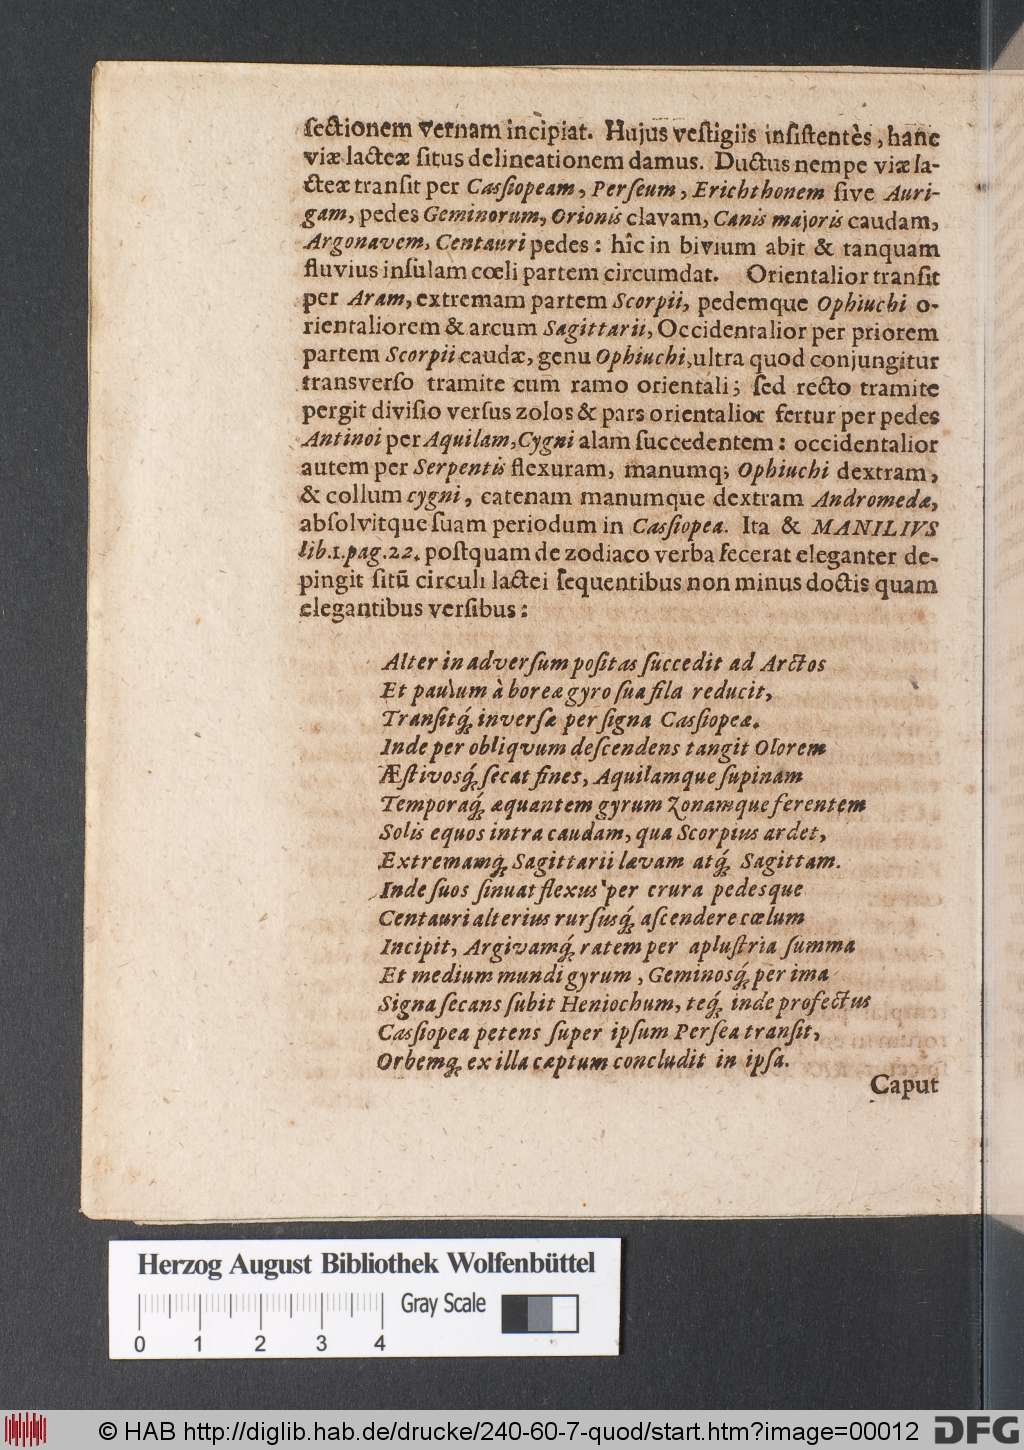 ſectionem vernam incipiat. Hujus veſtigiis inſiſtentès, hanc
viæ lacteæ ſitus delineationem damus. Ductus nempe viæ la-
cteæ tranſit per Caſſiopeam, Perſeum, Erichthonem ſive Auri-
gam, pedes Geminorum, Orionis clavam, Canis majoris caudam,
Argonavem, Centauri pedes: hîc in bivium abit & tanquam
fluvius inſulam cœli partem circumdat. Orientalior tranſit
per Aram, extremam partem Scorpii, pedemque Ophiuchi o-
rientaliorem & arcum Sagittarii, Occidentalior per priorem
partem Scorpii caudæ, genu Ophiuchi, ultra quod conjungitur
transverſo tramite cum ramo orientali; ſed recto tramite
pergit diviſio verſus zolos & pars orientalior fertur per pedes
Antinoi per Aquilam, Cygni alam ſuccedentem: occidentalior
autem per Serpentis flexuram, manumq; Ophiuchi dextram,
& collum cygni, catenam manumque dextram Andromedæ,
abſolvitque ſuam periodum in Caſſiopea. Ita & MANILIVS
lib.1.pag.22. poſtquam de zodiaco verba fecerat eleganter de-
pingit ſitū circuli lactei ſequentibus non minus doctis quam
elegantibus verſibus:
Alter in adverſum poſitas ſuccedit ad Arctos
Et paulum à boreæ gyro ſua fila reducit,
Tranſitq́; inverſæ per ſigna Caſſiopeæ.
Inde per obliqvum deſcendens tangit Olorem
Æſtivosq́; ſecat fines, Aquilamque ſupinam
Temporaq́; æquantem gyrum Zonamque ferentem
Solis equos intra caudam, qua Scorpius ardet,
Extremamq́; Sagittarii lævam atq́; Sagittam.
Inde ſuos ſinuat flexus per crura pedesque
Centauri alterius rurſusq́; aſcendere cœlum
Incipit, Argivamq́; ratem per apluſtria ſumma
Et medium mundi gyrum, Geminosq́; per ima
Signa ſecans ſubit Heniochum, teq́; inde profectus
Caſſiopea petens ſuper ipſum Perſea tranſit,
Orbemq́; ex illa cæptum concludit in ipſa.
Caput
Herzog August Bibliothek Wolfenbüttel
Gray Scale
0 1 2 3 4
© HAB http://diglib.hab.de/drucke/240-60-7-quod/start.htm?image=00012
DFG